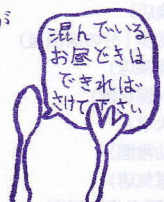 が
混んでいる
お昼どきは
できれば
さけて下さい